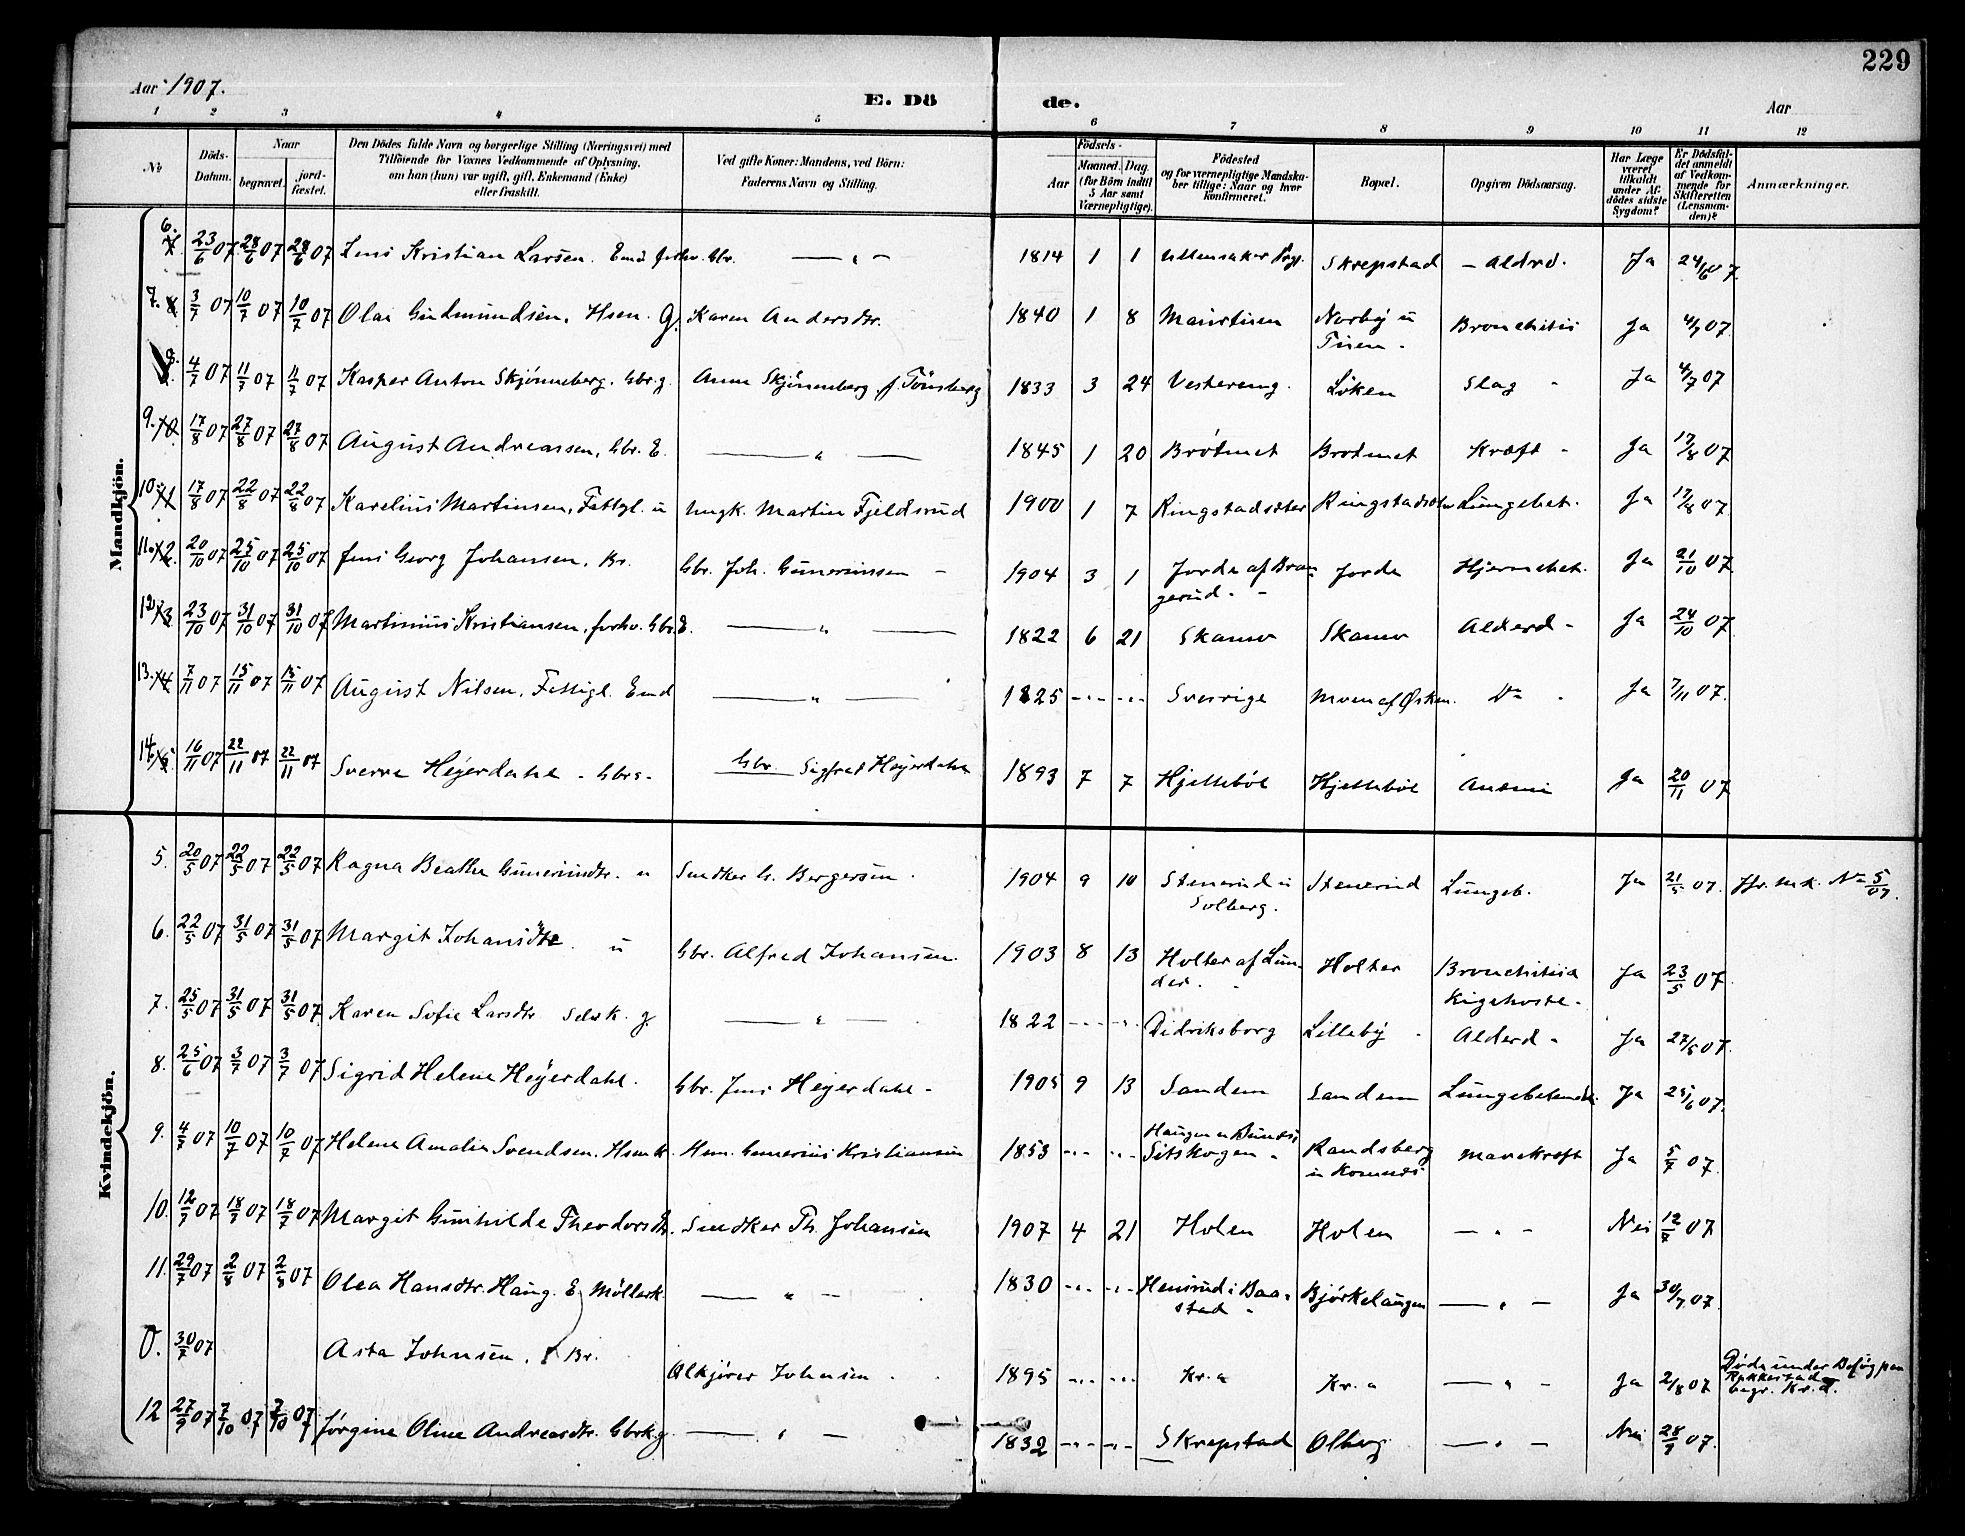 229
Aar 1907. E. Dö de. Aar
1 2 3 4 5 6 7 8 9 10 11 12
No
Döds-Datum.
Naar
begravet.
jord-fæstet.
Den Dödes fulde Navn og borgerlige Stilling (Næringsvei) med
Tilföiende for Voxnes Vedkommende af Oplysning,
om han (hun) var ugift, gift, Enkemand (Enke)
eller fraskilt.
Ved gifte Koner: Mandens, ved Börn:
Faderens Navn og Stilling.
Födsels-
Aar
Maaned. Dag.
(for Börn indtil
5 Aar samt
Værnepligtige).
Födested
og for værnepligtige Mandska-
ber tillige: Naar og hvor
konfirmeret.
Bopæl.
Opgiven Dödsaarsag.
Har Læge
været
tilkaldt
under Af-
dödes sidste
Sygdom?
Er Dödsfal-
det anmeldt
af Vedkom-
mende for
Skifteretten
(Lensman-
den)?
Anmærkninger.
Mandkjön.
6. 23/6 07 28/6 07 28/6 07 Jens Kristian Larsen. Emd forhv. Gbr. — " — 1814 1 1 Ullensaker Skrepstad - Aldrd. Ja 24/6 07.
7. 3/7 07 10/7 07 10/7 07 Olai Gudmundsen. Hsm. g. Karen Andersdtr. 1840 1 8 Maurtuen Norby u Bronchitis Ja 4/7 07.
Tuen -
8. 4/7 07 11/7 07 11/7 07 Kasper Anton Skjönneberg. Gbr. g. Anne Skjönneberg f. Tönsberg 1833 3 24 Vestereng. Löken Slag - Ja 4/7 07
9. 17/8 07 27/8 07 27/8 07 August Andreassen, Gbr. E. — " — 1845 1 20 Brötmet Brotmet Kræft - Ja 17/8 07
10. 17/8 07 22/8 07 22/8 07 Karelius Martinsen, Fattgl. u Ungk. Martin Fjeldsrud 1900 1 7 Ringstadsæter Lungebet. Ja 17/8 07.
11. 20/10 07 25/10 07 25/10 07 Jens Georg Johansen. Br. Gbr. Joh. Guneriussen - 1904 3 1 Jorde af Bran- Jorde Hjernebet. Ja 21/10 07.
gerud. -
12. 23/10 07 31/10 07 31/10 07 Martinius Kristiansen, forhv. Gbr. E. — " — 1822 6 21 Alderd - Ja 24/10 07.
13. 7/11 07 15/11 07 15/11 07 August Nilsen. Fattigl. Emd — " — 1825 -"- -"- Sverrige Moen af Øsken. Do - Ja 7/11 07.
14. 16/11 07 22/11 07 22/11 07 Sverre Heyerdahl - Gbrs - Gbr. Sigfred Heyerdahl 1893 7 7 Hjelleböl Hjelleböl Anæmi Ja 20/11 07
Kvindekjön.
5. 20/5 07 22/5 07 22/5 07 Ragna Beathe Guneriusdtr. u Snedker G. Bergersen. 1904 9 10 Stenerud u Stenerud Lungeb. Ja 21/5 07. Jfr. mk. No 5/07.
Solberg.
6. 22/5 07 31/5 07 31/5 07 Margit Johansdtr. u Gbr. Alfred Johansen. 1903 8 13 Holter af Lun- Holter Bronchitis Ja 23/5 07.
der. Kigehoste -
7. 25/5 07 31/5 07 31/5 07 Karen Sofie Larsdtr g. — " — 1822 -"- -"- Didriksborg Lilleby - Alderd - Ja 27/5 07.
8. 25/6 07 3/7 07 3/7 07 Sigrid Helene Heyerdahl. Gbr. Jens Heyerdahl - 1905 9 13 Sandem Sandem Ja 25/6 07.
9. 4/7 07 10/7 07 10/7 07 Helene Amalie Svendsen. Hsmk. Hsm. Gunerius Kristiansen 1853 -"- -"- Sitskogen - Randsberg Mavekræft Ja 5/7 07.
10. 12/7 07 18/7 07 18/7 07 Margit Gunhilde Theodorsdtr. Snedker Th. Johansen 1907 4 21 Holen Holen — " — Nei 12/7 07
11. 29/7 07 2/8 07 2/8 07 Olea Hansdtr. Haug. E. Möllerk. — " — 1830 -"- -"- Henirud i Baa- Björkelangen — " — Ja 30/7 07.
stad -
0. 30/7 07 Asta Johnsen. Br. Ølkjörer Johnsen. 1895 -"- -"- Kr.a Kr.a — " — Ja 2/8 07 Döde under Besög paa
Rakkestad
begr. Kr.a.
12 27/9 07 7/10 07 7/10 07 Jörgine Oline Andreasdtr. Gbrk. g. — " — 1832 -"- -"- Skrepstad Olberg — " — Nei 28/9 07.